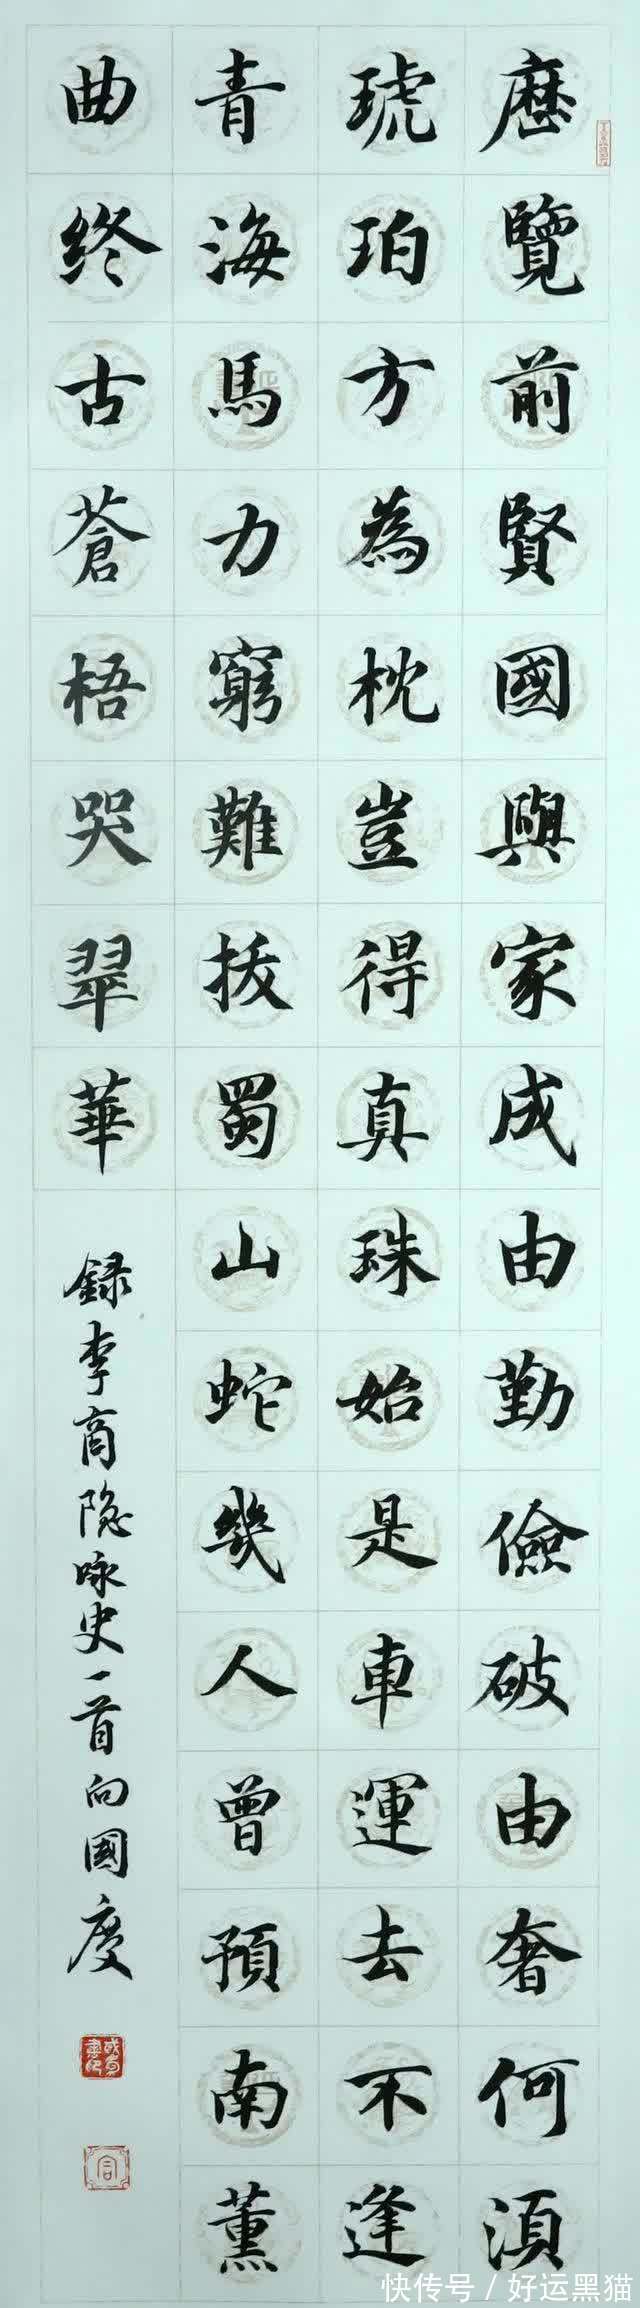 歷覽前賢國與家成由勤儉破由奢何須
琥珀方為枕豈得真珠始是車運去不逢
青海馬力窮難拔蜀山蛇幾人曾預南薰
曲終古蒼梧哭翠華
錄李商隐咏史一首向國度
快传号/好运黑猫